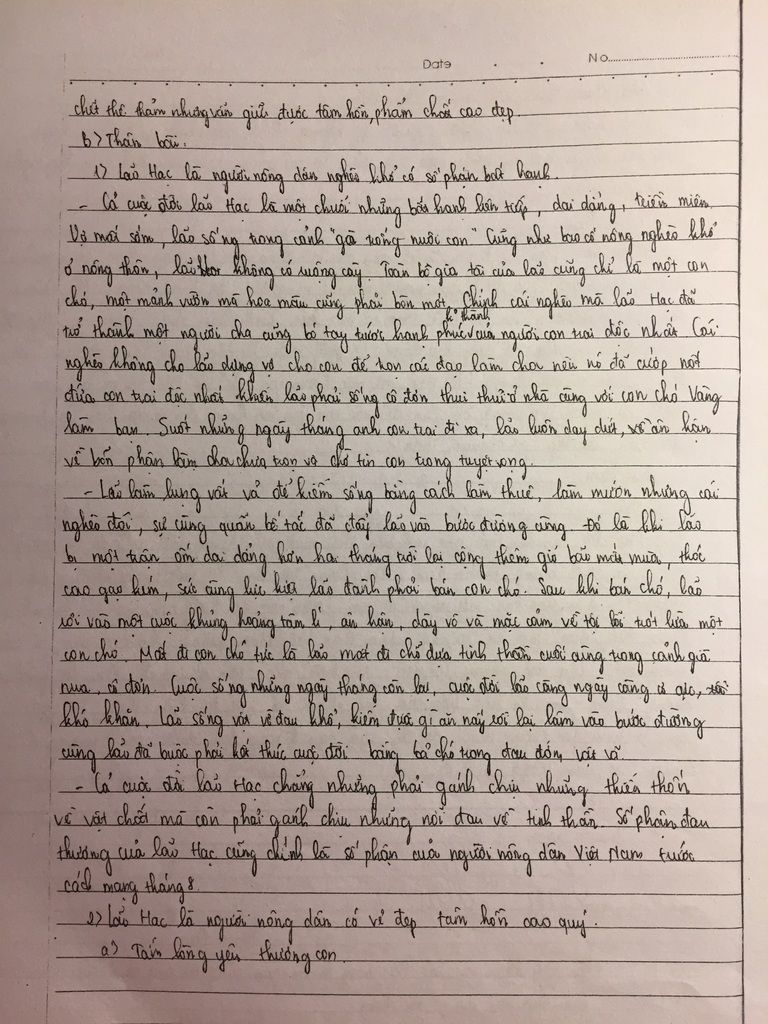 Date . . No
chết thê thảm nhưng vẫn giữ được tâm hồn, phẩm chất cao đẹp.
b) Thân bài:
1) Lão Hạc là người nông dân nghèo khổ có số phận bất hạnh.
- Cả cuộc đời lão Hạc là một chuỗi những bất hạnh liên tiếp, dai dẳng, triền miên.
Vợ mất sớm, lão sống trong cảnh "gà trống nuôi con". Cũng như bao cố nông nghèo khổ
ở nông thôn, lão không có ruộng cày. Toàn bộ gia tài của lão cũng chỉ là một con
chó, một mảnh vườn mà hoa màu cũng phải bòn mót. Chính cái nghèo mà lão Hạc đã
trở thành một người cha cũng bó tay trước hạnh phúc của người con trai độc nhất. Cái
nghèo không cho lão dựng vợ cho con để trọn cái đạo làm cha nên nó đã cướp nốt
đứa con trai độc nhất khiến lão phải sống cô đơn thui thủi ở nhà cùng với con chó Vàng
làm bạn. Suốt những ngày tháng anh con trai đi xa, lão luôn day dứt, ân hận
về bổn phận làm cha chưa trọn và chờ tin con trong tuyệt vọng.
- Lão làm lụng vất vả để kiếm sống bằng cách làm thuê, làm mướn nhưng cái
nghèo đói, sự cùng quẫn bế tắc đã đẩy lão vào bước đường cùng. Đó là khi lão
bị một trận ốm dai dẳng hơn hai tháng trời lại cộng thêm gió bão mất mùa, thóc
cao gạo kém, sức cùng lực kiệt lão đành phải bán con chó. Sau khi bán chó, lão
rơi vào một cuộc khủng hoảng tâm lí, ân hận, dày vò và mặc cảm về tội lỗi trót lừa một
con chó. Mất đi con chó tức là lão mất đi chỗ dựa tinh thần cuối cùng trong cảnh già
nua, cô đơn. Cuộc sống những ngày tháng còn lại, cuộc đời lão càng ngày càng cơ cực,
khó khăn. Lão sống vật vờ đau khổ, kiếm được gì ăn nấy rồi lại lâm vào bước đường
cùng lão đã buộc phải kết thúc cuộc đời bằng bả chó trong đau đớn, vật vã.
- Cả cuộc đời lão Hạc chẳng những phải gánh chịu những thiếu thốn
về vật chất mà còn phải gánh chịu những nỗi đau về tinh thần. Số phận đau
thương của lão Hạc cũng chính là số phận của người nông dân Việt Nam trước
cách mạng tháng 8.
2) Lão Hạc là người nông dân có vẻ đẹp tâm hồn cao quý.
a) Tấm lòng yêu thương con.